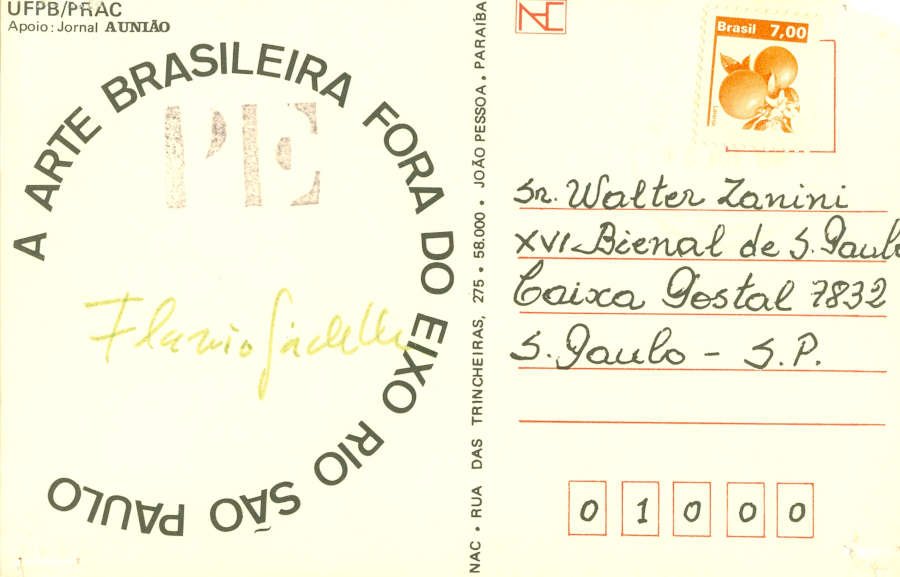 UFPB/PRAC
Apoio: Jornal A UNIÃO
A ARTE BRASILEIRA FORA DO EIXO RIO SÃO PAULO
PE
Flavio Gadelha
NAC • RUA DAS TRINCHEIRAS, 275 • 58.000 • JOÃO PESSOA • PARAÍBA
Brasil 7,00
Sr. Walter Zanini
XVI Bienal de S. Paulo
Caixa Postal 7832
S. Paulo - S.P.
0 1 0 0 0